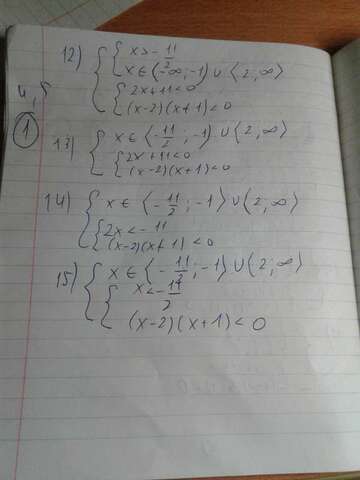 12) { { x > - 11/2
x ∈ (-∞; -1) ∪ ⟨2; ∞)
{ 2x + 11 < 0
(x-2)(x+1) < 0
①
13) { x ∈ ⟨- 11/2; -1) ∪ ⟨2; ∞)
{ 2x + 11 < 0
(x-2)(x+1) < 0
14) { x ∈ ⟨- 11/2; -1⟩ ∪ ⟨2; ∞)
{ 2x < - 11
(x-2)(x+1) < 0
15) { x ∈ ⟨- 11/2; -1⟩ ∪ ⟨2; ∞)
{ x < - 11/2
(x-2)(x+1) < 0